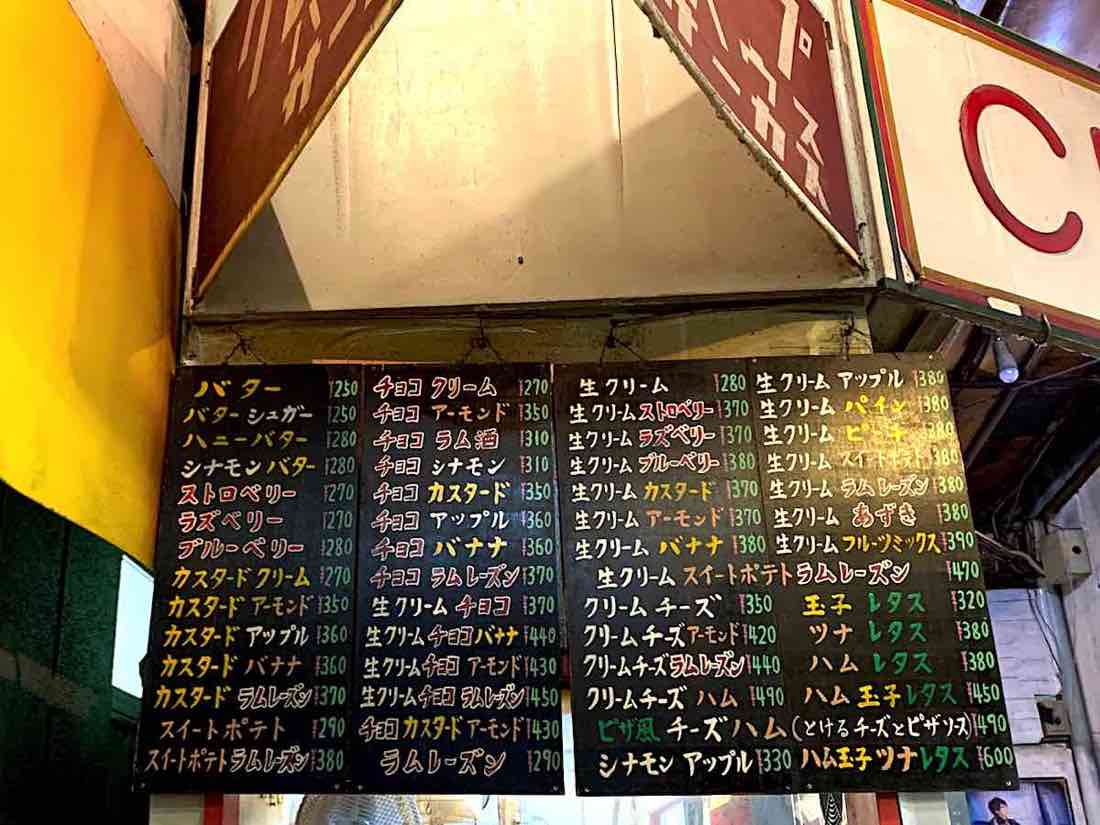 プ
ス
C
バター ¥250
バターシュガー ¥250
ハニーバター ¥280
シナモンバター ¥280
ストロベリー ¥270
ラズベリー ¥270
ブルーベリー ¥280
カスタードクリーム ¥270
カスタード アーモンド ¥350
カスタード アップル ¥360
カスタード バナナ ¥360
カスタード ラムレーズン ¥370
スイートポテト ¥290
スイートポテトラムレーズン ¥380
チョコ クリーム ¥270
チョコ アーモンド ¥350
チョコ ラム酒 ¥310
チョコ シナモン ¥310
チョコ カスタード ¥350
チョコ アップル ¥360
チョコ バナナ ¥360
チョコ ラムレーズン ¥370
生クリーム チョコ ¥370
生クリームチョコバナナ ¥440
生クリームチョコ アーモンド ¥430
生クリームチョコ ラムレーズン ¥450
チョコカスタードアーモンド ¥430
ラムレーズン ¥290
生クリーム ¥280
生クリームストロベリー ¥370
生クリームラズベリー ¥370
生クリームブルーベリー ¥380
生クリーム カスタード ¥370
生クリーム アーモンド ¥370
生クリーム バナナ ¥380
生クリーム アップル ¥380
生クリーム パイン ¥380
生クリーム ピーチ ¥380
生クリーム スイートポテト ¥380
生クリーム ラムレーズン ¥380
生クリーム あずき ¥380
生クリームフルーツミックス ¥390
生クリーム スイートポテトラムレーズン ¥470
クリームチーズ ¥350
クリームチーズアーモンド ¥420
クリームチーズラムレーズン ¥440
クリームチーズ ハム ¥490
玉子 レタス ¥320
ツナ レタス ¥380
ハム レタス ¥380
ハム 玉子レタス ¥450
ピザ風 チーズハム(とけるチーズとピザソース) ¥490
シナモン アップル ¥330
ハム玉子ツナレタス ¥600